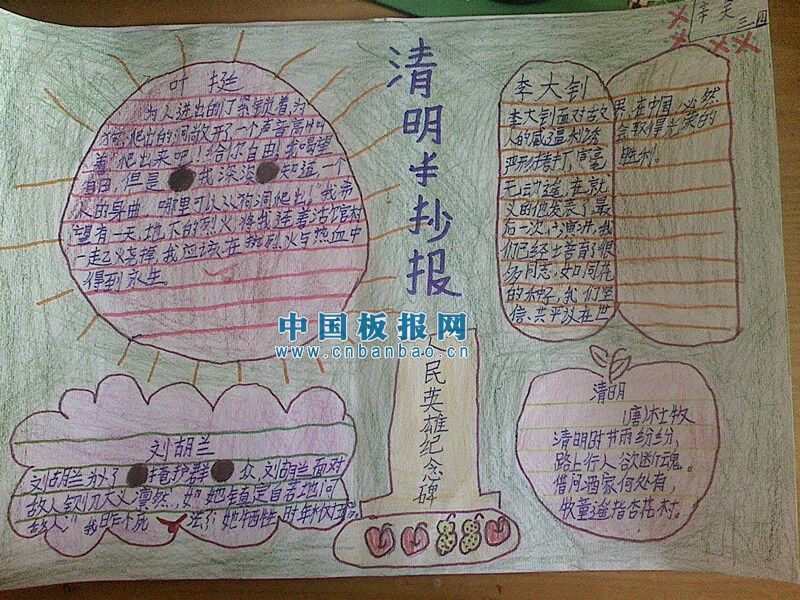 清明手抄报
叶挺
为人进出的门紧锁着,为
狗爬出的洞敞开了一个声音高叫
着,爬出来吧!给你自由,我渴望
自由,但是 我深深 知道,一个
人的身曲,哪里可以以狗洞爬出!我希
望有一天,地下的烈火,将我连着活馆材
一起火烧掉,我应该在 烈火与热血中
得到永生.
李大钊
李大钊面对古
人的威了温利诱
严形拷打,同毫
无云动遥,在就
义的他发表了最
后一次,十演讲,我
们已经土苦育了很
多同志,如同花
的种子,我们坚
信、共平议在
界,在中国,必然
会取得光荣的
胜利。
刘胡兰
刘胡兰为了 掩护群 众,刘胡兰面对
故人 大义凛然,如 她镇定自若地问
故人:"我咋个死 法?她牺牲时年
人民英雄纪念碑
清明
(唐)杜牧
清明时节雨纷纷、
路上行人欲断魂。
借问酒家何处有,
牧童遥指杏花村。
三.四
中国板报网
www.cnbanbao.cn